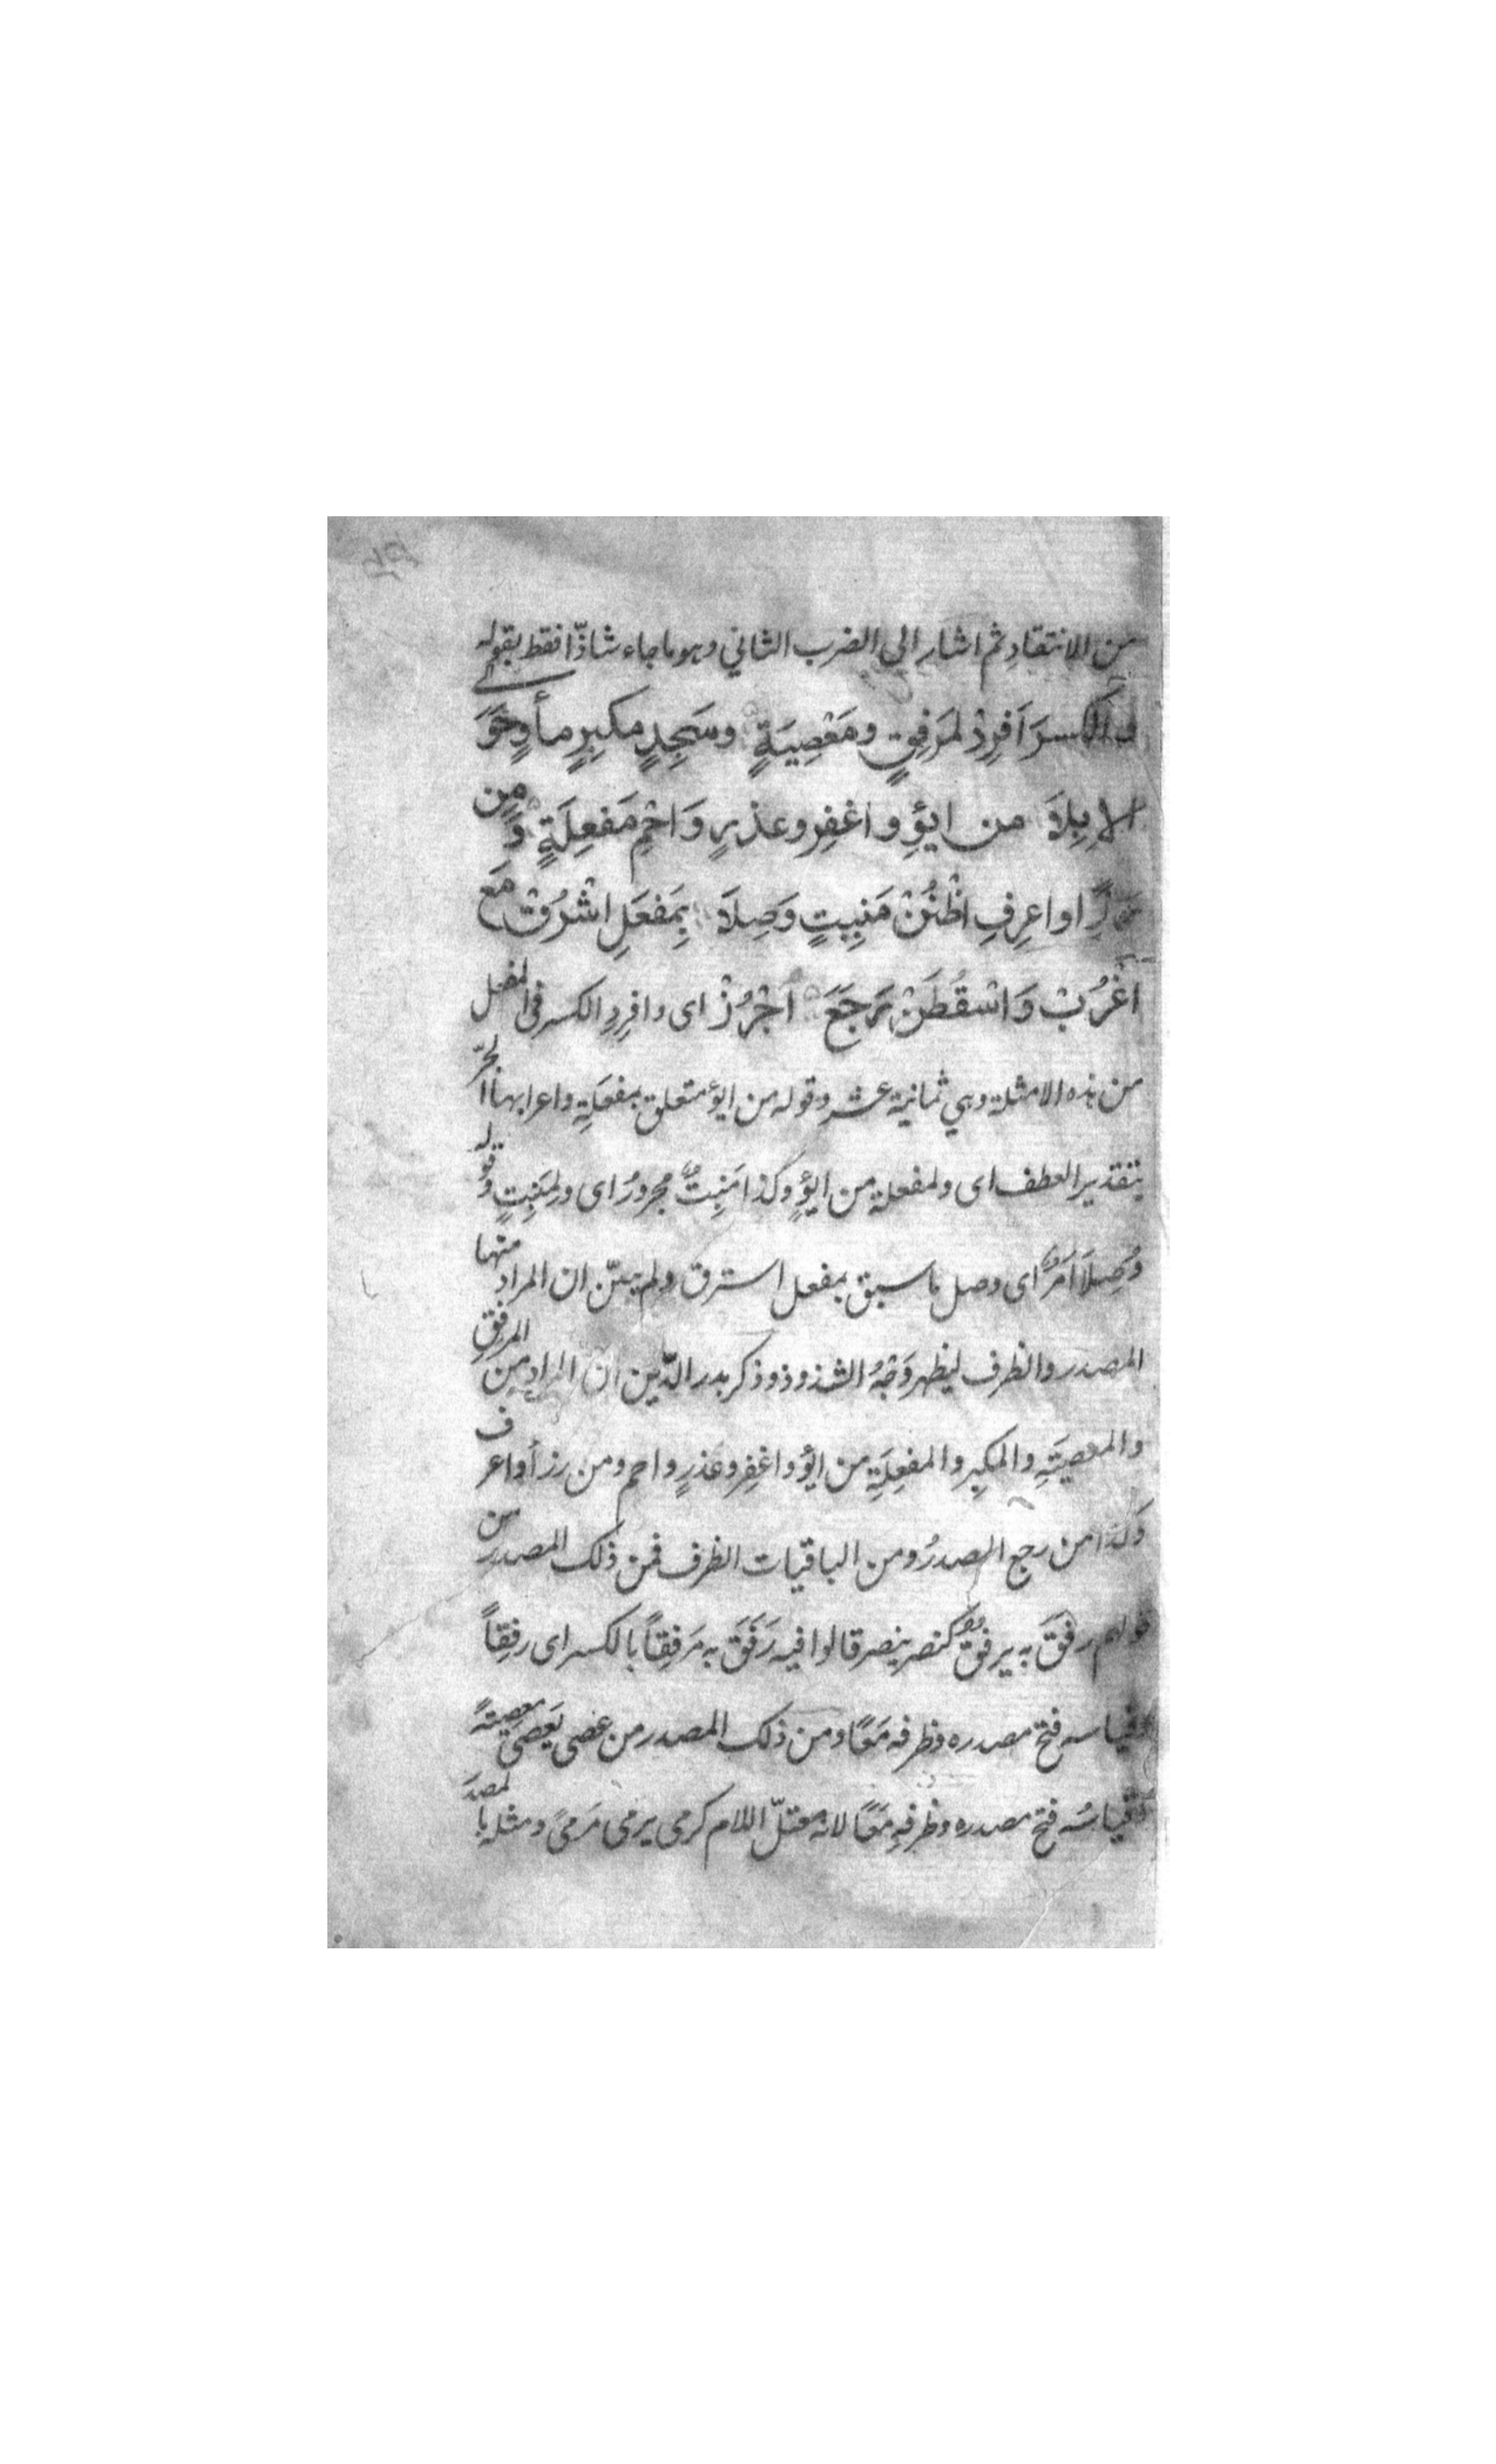 من الانتقاد ثم اشار الى الضرب الثاني وهو ما جاء شاذّا فقط بقوله
الكسرَ اَفرِدْ لمَرفِقٍ ومَعْصِيَةٍ ومَسجِدٍ مكبِرٍ مأوٍ حَوَى
الاِبِلاَ من ايؤِ واغفِر وعذرٍ وَاحْمِ مَفعِلَةٍ وَمِن
اواعرِفِ اظْنُنْ مَنبِتٍ وَصِلاَ بِمَفعَلِ اشْرُقْ مَع
اُغْرُبْ وَاسْقُطَنْ رَجَعَ اُجْزُرْ اى وافرِدِ الكسر فى المفعل
من هذه الامثلة وهي ثمانية عشر وقوله من ايؤ متعلق بمفعَلِةٍ واعرابها الجرّ
بتقدير العطف اى ولمفعلة من ايؤٍ وكذا مَنبِتٌ مجرورٌ اى ولِمَنبِتٍ وقوله
وَصِلاَ امرٌ اى وصل ما سبق بمفعل اشرق ولم يبيّن ان المراد منها
المصدر والظرف ليظهر وَجْهُ الشذوذ وذكر بدر الدّين ان المراد من المرفِقِ
والمعصِيَةِ والمكبِرِ والمفعِلَةِ من ايؤ واغفِر وعَذرٍ واحم ومن رزأ واعرف
وكذا من رجع المصدرُ ومن الباقيات الظرف فمن ذلك المصدر من
قولهم رفَقَ به يرفق كنصر ينصر قالوا فيه رَفَقَ به مَرفِقاً بالكسر اى رفِقاً
وقياسه فتح مصدره وظرفه مَعًا ومن ذلك المصدر من عصى يَعصى معصِيةً
وقياسُه فتح مصدره وظرفِه مَعًا لانه معتلّ اللام كرمى يرمى مَرمىً ومثله بالمصدَر